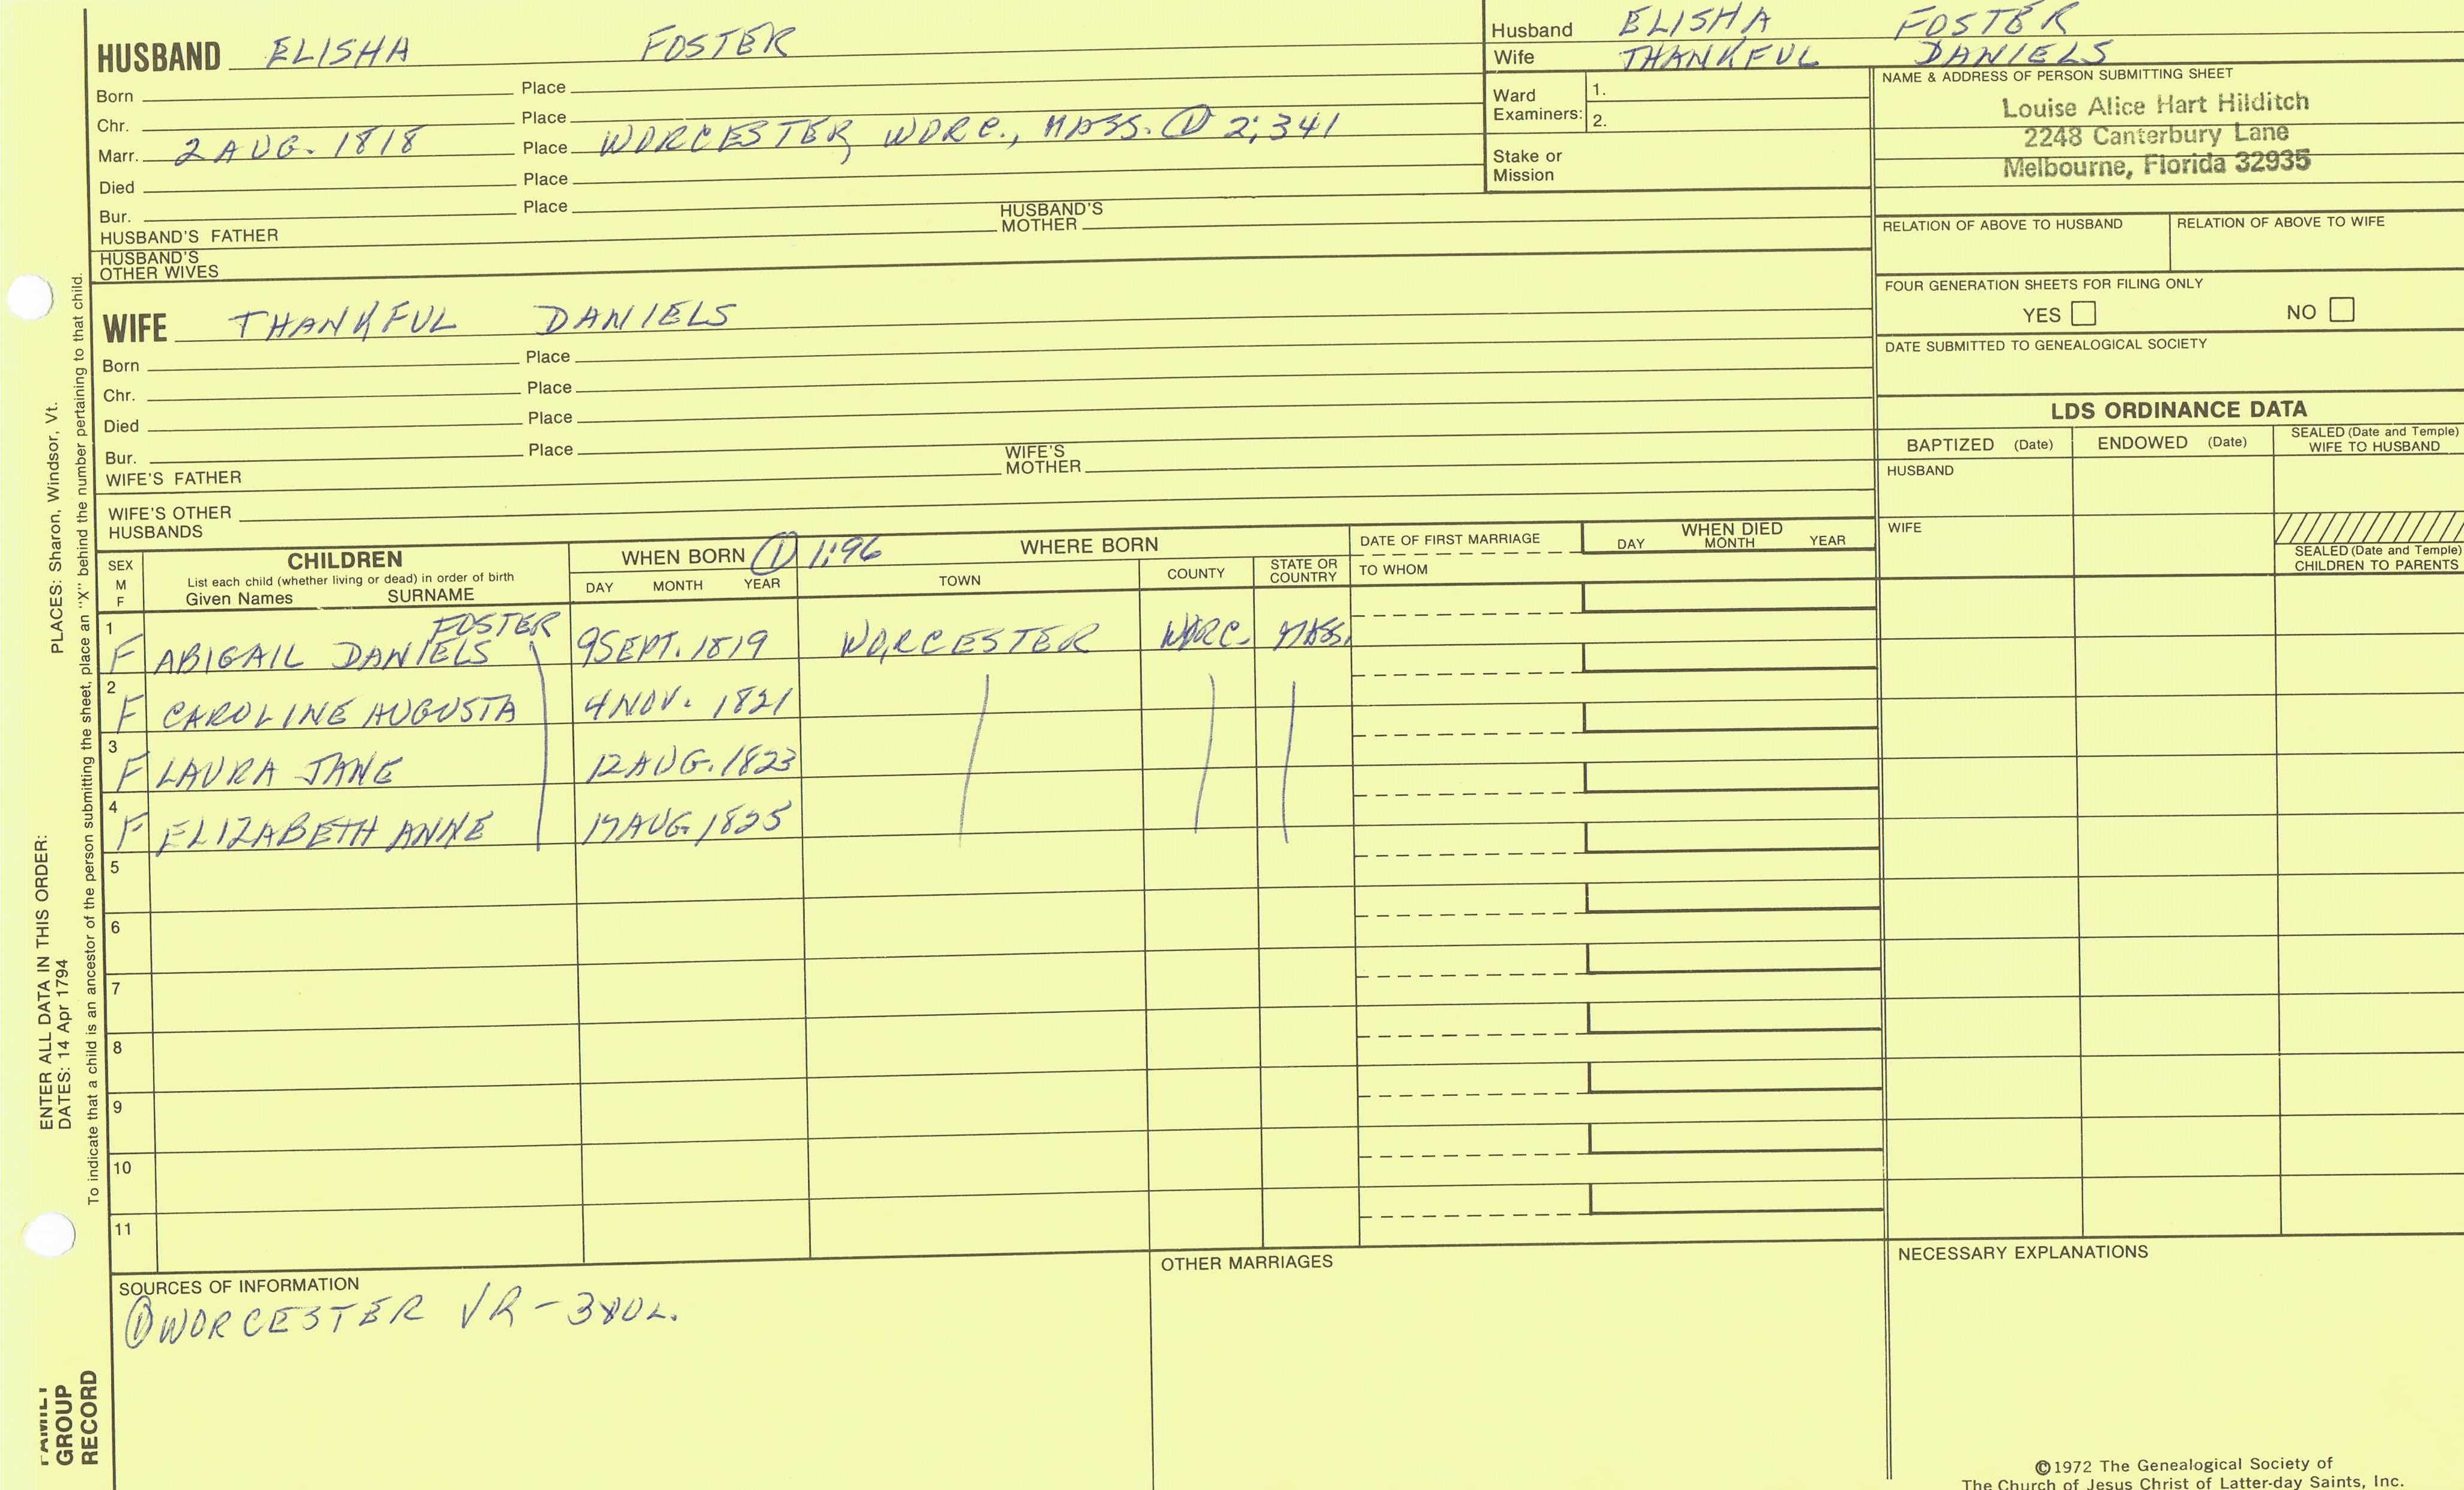 HUSBAND ELISHA FOSTER
Born Place
Chr. Place
Marr. 2 AUG. 1818 Place WORCESTER, WORC., MASS. ① 2:341
Died Place
Bur. Place
HUSBAND'S FATHER HUSBAND'S MOTHER
HUSBAND'S OTHER WIVES
Husband ELISHA FOSTER
Wife THANKFUL DANIELS
Ward Examiners: 1.
2.
Stake or Mission
NAME & ADDRESS OF PERSON SUBMITTING SHEET
Louise Alice Hart Hilditch
2248 Canterbury Lane
Melbourne, Florida 32935
RELATION OF ABOVE TO HUSBAND RELATION OF ABOVE TO WIFE
FOUR GENERATION SHEETS FOR FILING ONLY
YES NO
DATE SUBMITTED TO GENEALOGICAL SOCIETY
WIFE THANKFUL DANIELS
Born Place
Chr. Place
Died Place
Bur. Place
WIFE'S FATHER WIFE'S MOTHER
WIFE'S OTHER HUSBANDS
LDS ORDINANCE DATA
BAPTIZED (Date) ENDOWED (Date) SEALED (Date and Temple) WIFE TO HUSBAND
HUSBAND
WIFE
SEALED (Date and Temple) CHILDREN TO PARENTS
SEX M F CHILDREN WHEN BORN ① 1:96 WHERE BORN DATE OF FIRST MARRIAGE WHEN DIED
List each child (whether living or dead) in order of birth
Given Names SURNAME DAY MONTH YEAR TOWN COUNTY STATE OR COUNTRY TO WHOM DAY MONTH YEAR
FOSTER
1 F ABIGAIL DANIELS 9 SEPT. 1819 WORCESTER WORC. MASS.
2 F CAROLINE AUGUSTA 4 NOV. 1821
3 F LAURA JANE 12 AUG. 1823
4 F ELIZABETH ANNE 17 AUG. 1825
5
6
7
8
9
10
11
SOURCES OF INFORMATION
① WORCESTER VR - 3 VOL.
OTHER MARRIAGES
NECESSARY EXPLANATIONS
©1972 The Genealogical Society of
The Church of Jesus Christ of Latter-day Saints, Inc.
ENTER ALL DATA IN THIS ORDER:
DATES: 14 Apr 1794 PLACES: Sharon, Windsor, Vt.
To indicate that a child is an ancestor of the person submitting the sheet, place an "X" behind the number pertaining to that child.
FAMILY
GROUP
RECORD